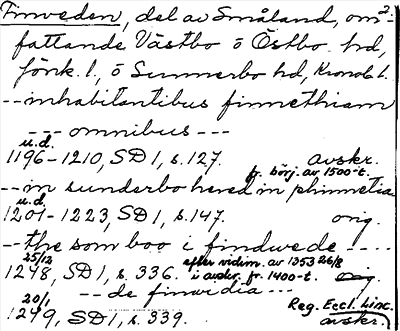 Finveden, del av Småland, om- 2.
fattande Västbo o Östbo hd,
Jönk. l., o Sunnerbo hd, Kronob. l.
-- inhabitantibus finnethiam
--- omnibus ---
u.d.
1196-1210, SD 1, s. 127. avskr.
fr. börj. av 1500-t.
-- in sunderbo hered in phinnetia
u.d.
1201-1223, SD 1, s. 147. orig.
-- the som boo i findwede ----
25/12 efter vidim. av 1353 26/8
1248, SD 1, s. 336. i avskr. fr. 1400-t. orig.
-- de finwidia ---
20/1 Reg. Eccl. Linc.
1249, SD 1, s. 339. avskr.